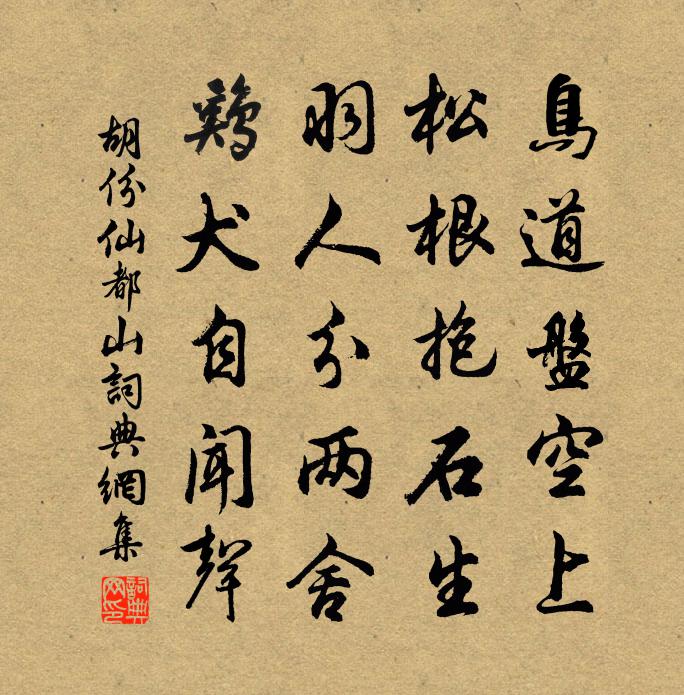 鳥道盤空上
松根抱石生
羽人分两舍
鷄犬自聞聲
胡份仙都山詞典網集
詞典网印